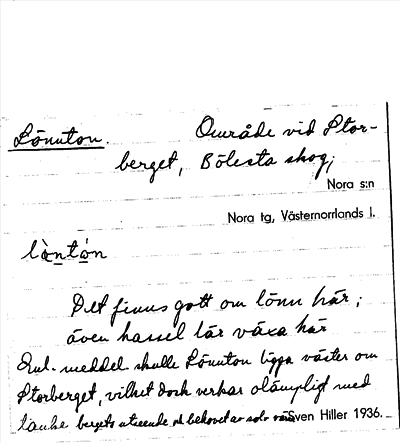 Lönnton. Område vid Stor-
berget, Bölesta skog;
Nora s:n
Nora tg, Västernorrlands l.
lòntón
Det finns gott om lönn här;
även hassel lär växa här
Enl. meddel skulle Lönnton ligga väster om
Storberget, vilket dock verkar olämpligt med
tanke bergets utseende och behovet av sol
Sven Hiller 1936.